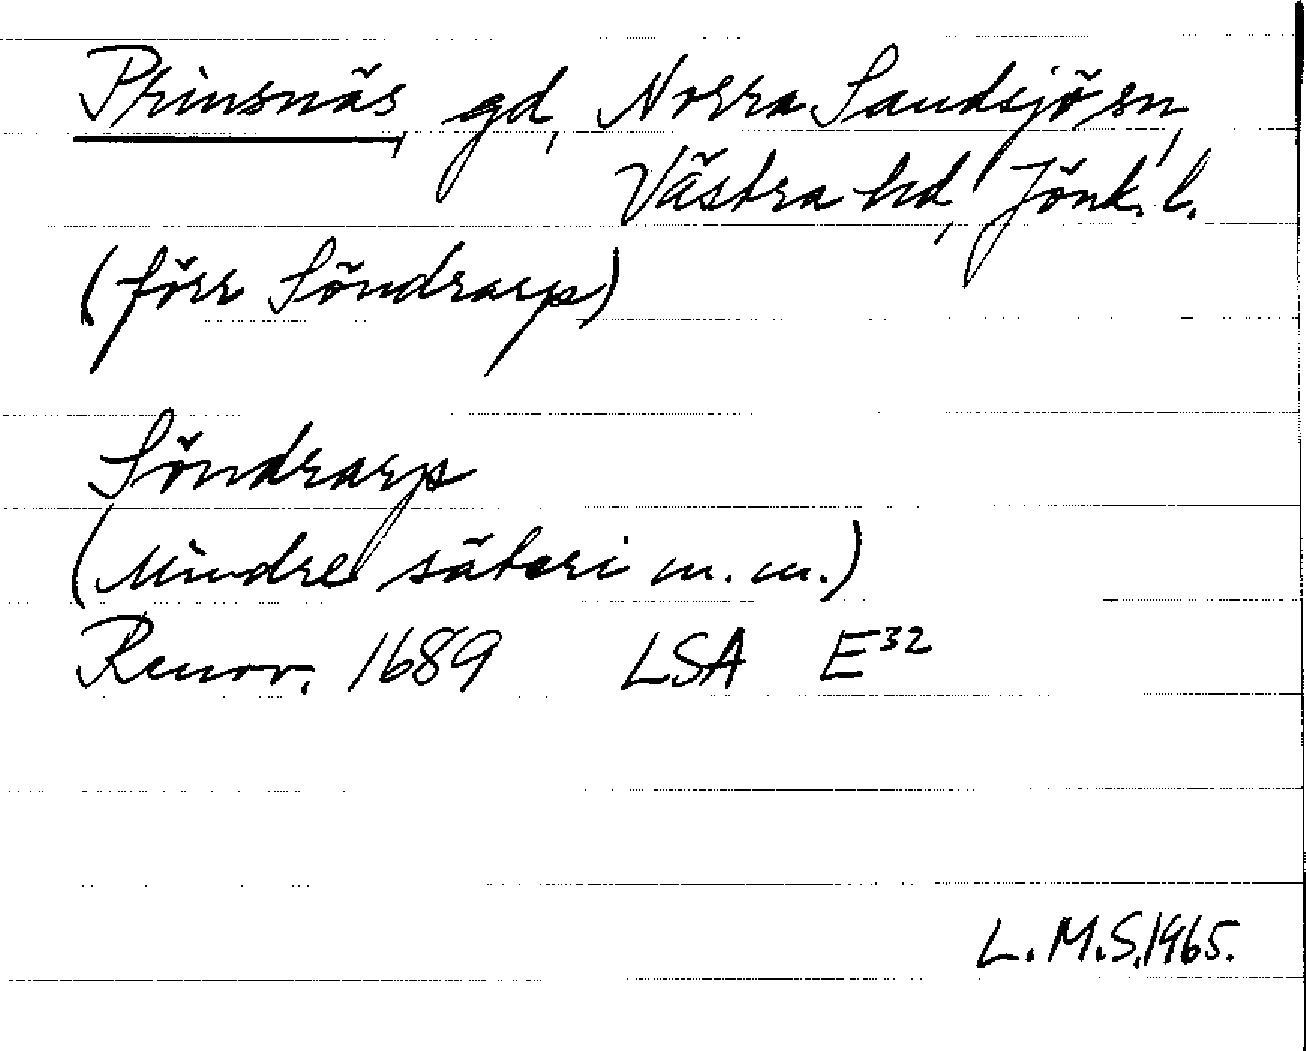 Prinsnäs, gd, Norra Sandsjö sn,
Västra hd, Jönk. l.
(förr Söndrarp)
Söndrarp
(Mindre säteri m. m.)
Renov. 1689 LSA E³²
L. M. S. 1965.